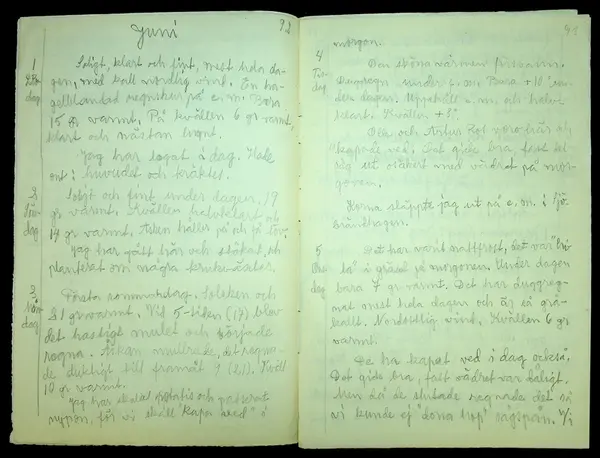 Juni 92
1
Lör
dag
Soligt, klart och fint, mest hela da-
gen, med kall nordlig vind. En ha-
gelblandad regnskur på e.m. Bara
15 gr varmt. På kvällen 6 gr varmt,
klart och nästan lugnt.
Jag har legat i dag. Hade
ont i huvudet och kräktes.
2
Sön
dag
Soligt och fint under dagen, 19
gr varmt. Kvällen halvklart och
14 gr varmt. Asken håller på och få löv.
Jag har gått här och stökat, och
planterat om några krukväxter.
3
Mån
dag
Första sommardag. Solsken och
21 gr varmt. Vid 5-tiden (17) blev
det hastigt mulet och började
regna. Åskan mullrade, det regna-
de duktigt till framåt 9 (21). Kväll
10 gr varmt.
Jag har skalat potatis och passerat
nypon, för vi skall "kapa ved" i
93
4
Tis
dag
morgon.
Den sköna värmen försvann.
Duggregn under f.m. Bara +10 un-
der dagen. Uppehåll e.m. och halvt
klart. Kvällen +5°.
Ola och Artur voro här och
kapade ved. Det gick bra, fast det
såg ut osäkert med vädret på mor-
gonen.
Korna släppte jag ut på e.m. i
5
dag
Det har varit nattfrost, det var
i gräset på morgonen. Under dagen
bara 7 gr varmt. Det har duggreg-
nat mest hela dagen och är så grå-
kallt. Nordostlig vind. Kvällen 6 gr
varmt.
De ha kapat ved i dag också.
Det gick bra, fast vädret var dåligt.
Men då de slutade regnade det så
vi kunde ej "dona hop" sågspån. Vi